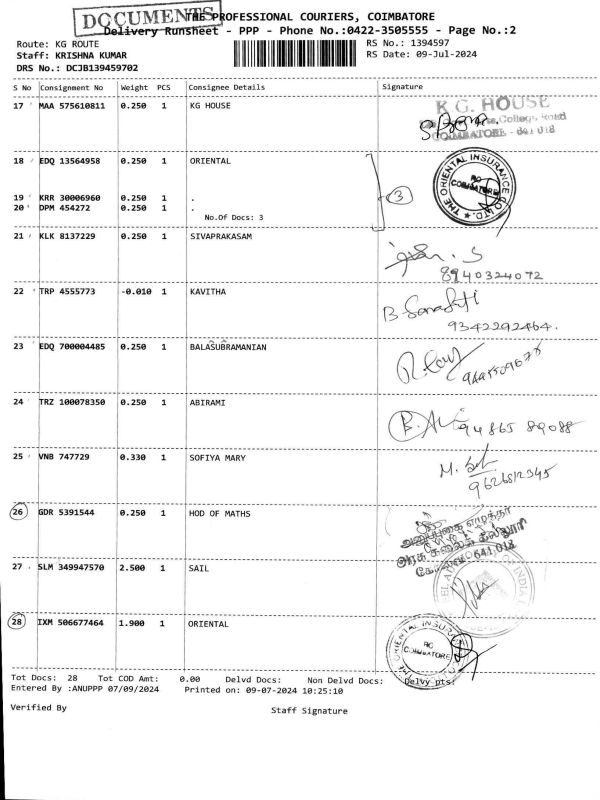 DOCUMENTS
THE PROFESSIONAL COURIERS, COIMBATORE
Delivery Runsheet - PPP - Phone No.:0422-3505555 - Page No.:2
Route: KG ROUTE
RS No.: 1394597
Staff: KRISHNA KUMAR
RS Date: 09-Jul-2024
DRS No.: DCJB139459702
S No Consignment No Weight PCS Consignee Details Signature
17 MAA 575610811 0.250 1 KG HOUSE
K G. HOUSE
College, Road
COIMBATORE - 641 018
18 EDQ 13564958 0.250 1 ORIENTAL
THE ORIENTAL INSURANCE CO LTD.
RO
COIMBATORE
19 KRR 30006960 0.250 1 .
3
20 DPM 454272 0.250 1 .
No.Of Docs: 3
21 KLK 8137229 0.250 1 SIVAPRAKASAM
8940324072
22 TRP 4555773 -0.010 1 KAVITHA
9342292464.
23 EDQ 700004485 0.250 1 BALASUBRAMANIAN
24 TRZ 100078350 0.250 1 ABIRAMI
94865 89088
25 VNB 747729 0.330 1 SOFIYA MARY
9626812345
26 GDR 5391544 0.250 1 HOD OF MATHS
அரசு கலைக் கல்லூரி
641 018
27 SLM 349947570 2.500 1 SAIL
28 IXM 506677464 1.900 1 ORIENTAL
THE ORIENTAL INSURANCE
RO
COIMBATORE
Tot Docs: 28 Tot COD Amt: 0.00 Delvd Docs: Non Delvd Docs: Delvy pts:
Entered By :ANUPPP 07/09/2024 Printed on: 09-07-2024 10:25:10
Verified By
Staff Signature